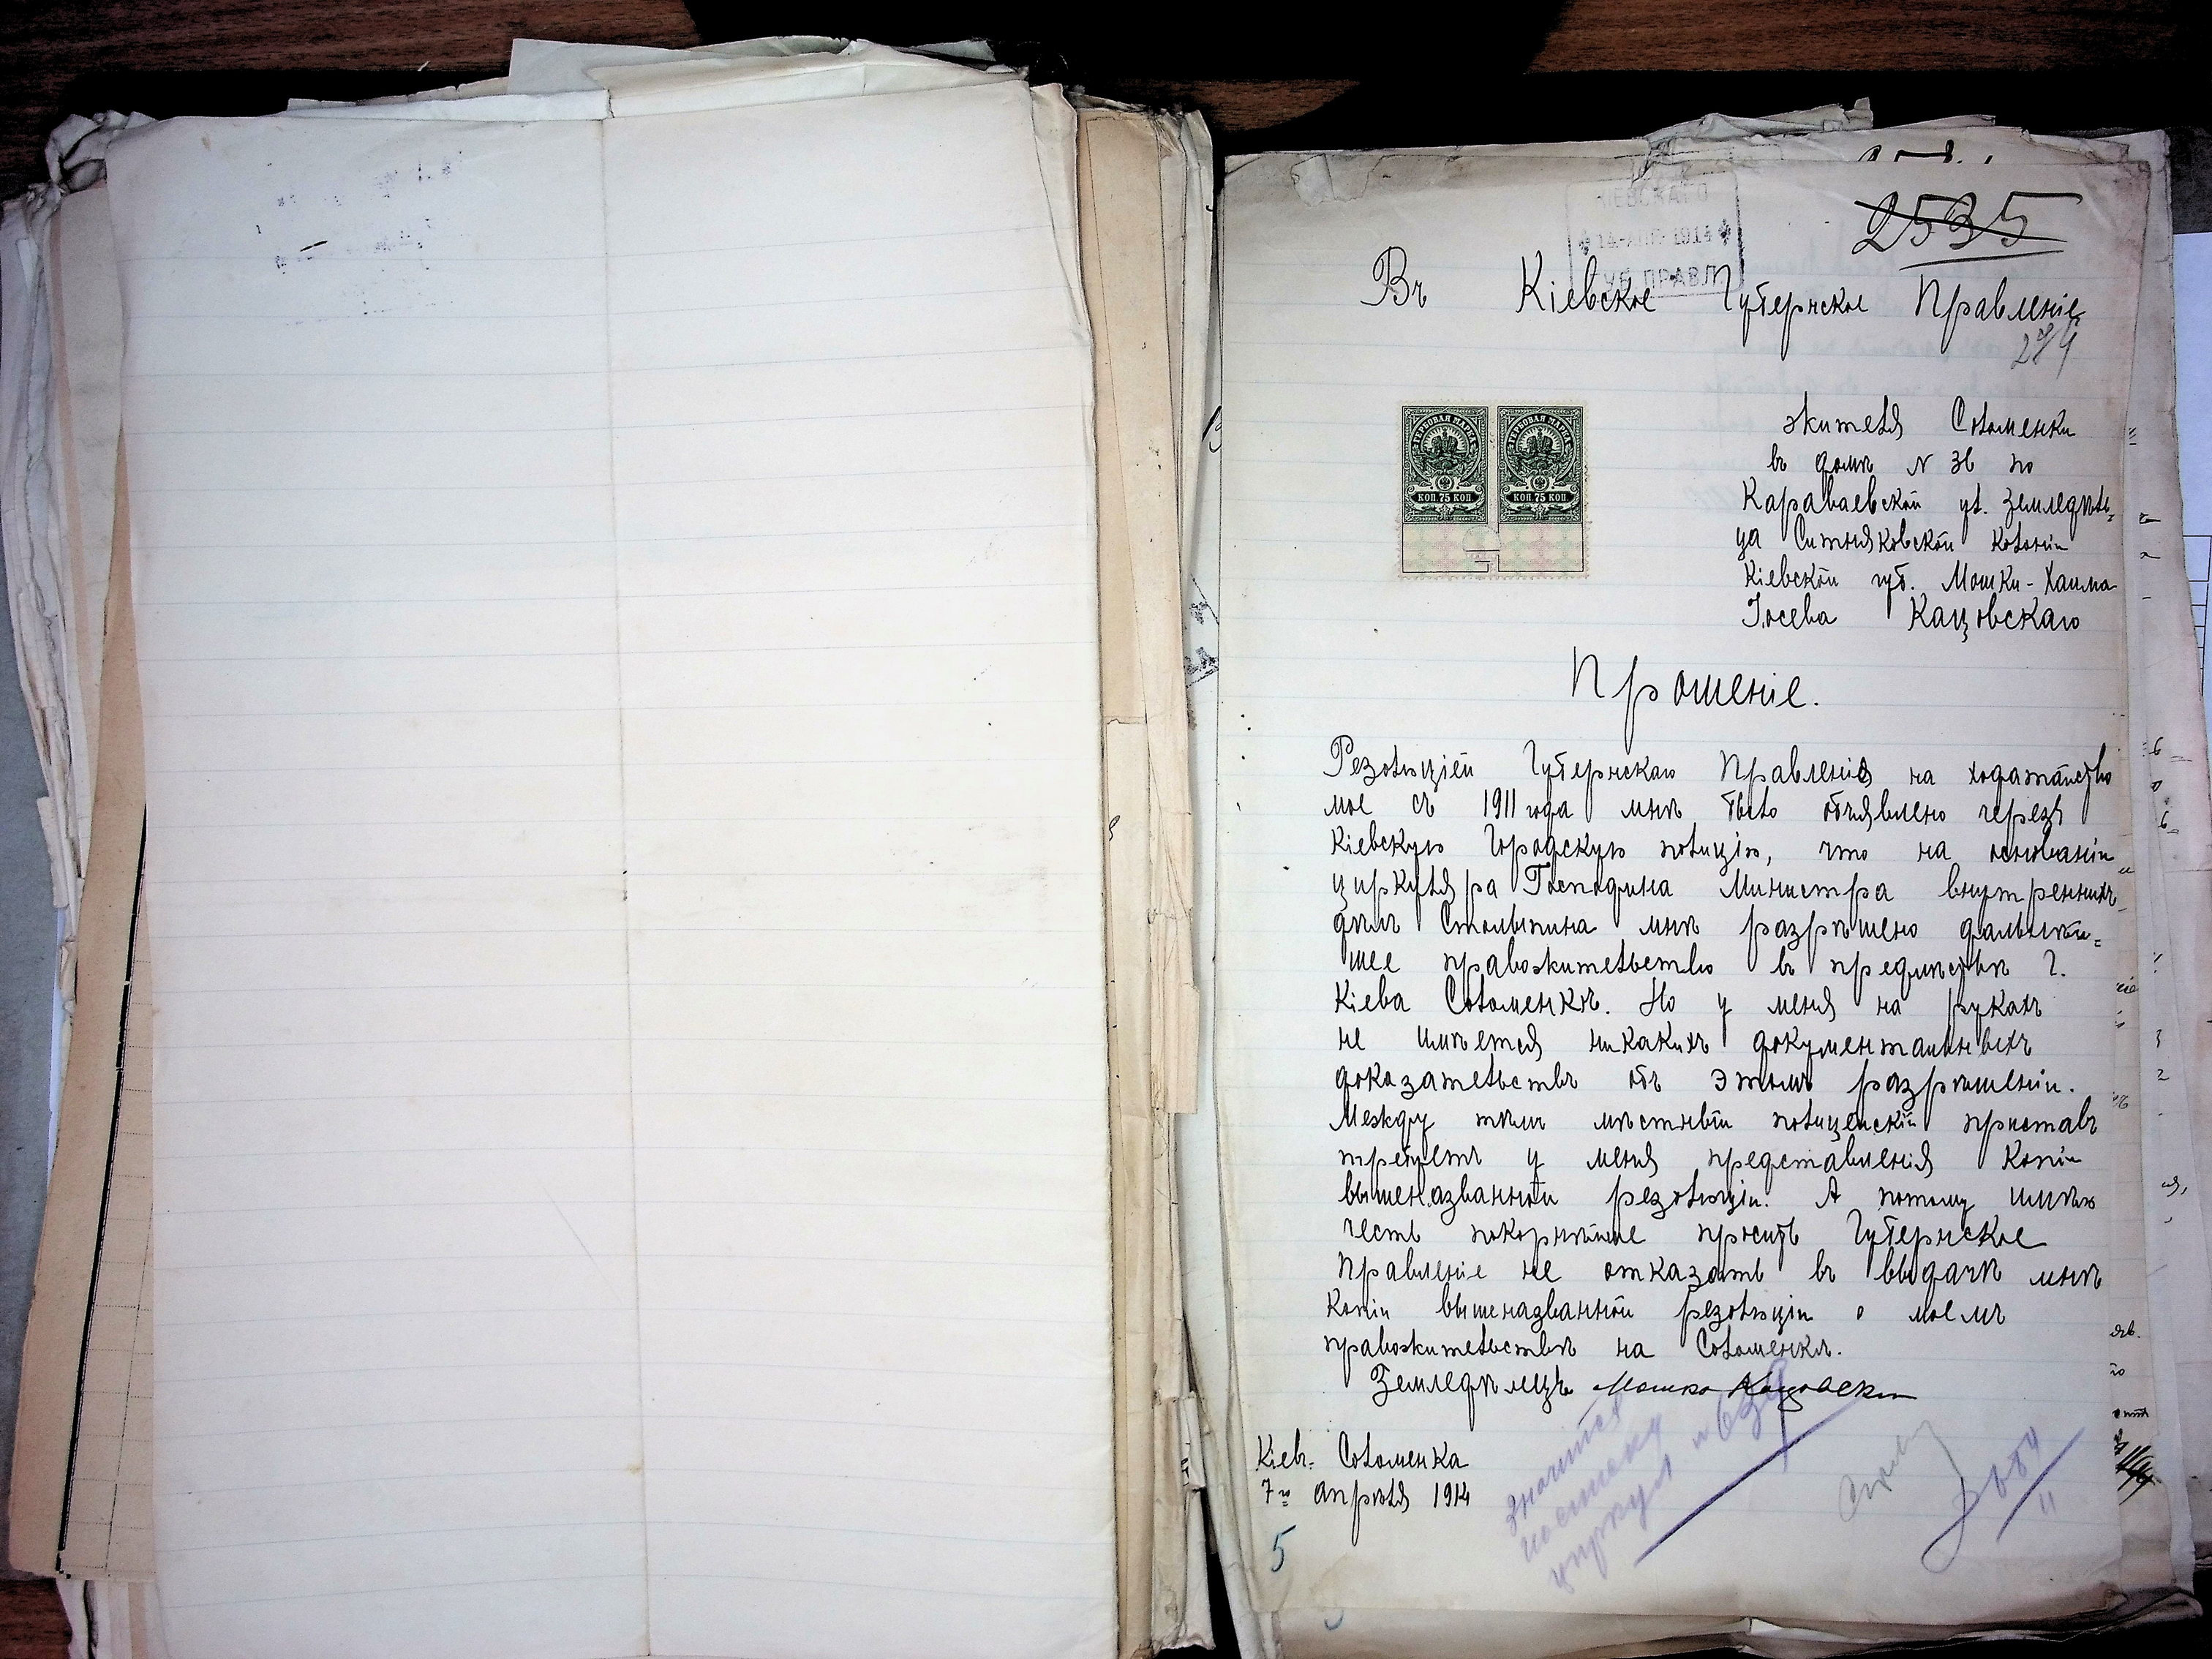 2535
КІЕВСКАГО
14 АПР 1914
ГУБ. ПРАВЛ.
Въ Кіевское Губернское Правленіе
284
жителя Соломенки
въ домѣ N 36 по
Караваевской ул. Земледѣль-
ца Ситняковской колоніи
Кіевской губ. Мошки-Хаима
Іосева Кацовскаго
ГЕРБОВАЯ МАРКА ГЕРБОВАЯ МАРКА
КОП. 75 КОП. КОП. 75 КОП.
Прошеніе.
Резолюціей Губернскаго Правленія на ходатайство
мое съ 1911 года мнѣ было объявлено черезъ
Кіевскую Городскую полицію, что на основаніи
циркуляра Господина Министра внутреннихъ
дѣлъ Столыпина мнѣ разрѣшено дальнѣй-
шее правожительство въ предмѣстьѣ г.
Кіева Соломенкѣ. Но у меня на рукахъ
не имѣется никакихъ документальныхъ
доказательствъ объ этомъ разрѣшеніи.
Между тѣмъ мѣстный полицейскій приставъ
требуетъ у меня представленія копіи
вышеназванной резолюціи. А потому имѣю
честь покорнѣйше просить Губернское
Правленіе не отказать въ выдачѣ мнѣ
копіи вышеназванной резолюціи о моемъ
правожительствѣ на Соломенкѣ.
Земледѣлецъ Мошко Кацовскій
Кіевъ. Соломенка
7го апрѣля 1914
значится
по
циркул
5